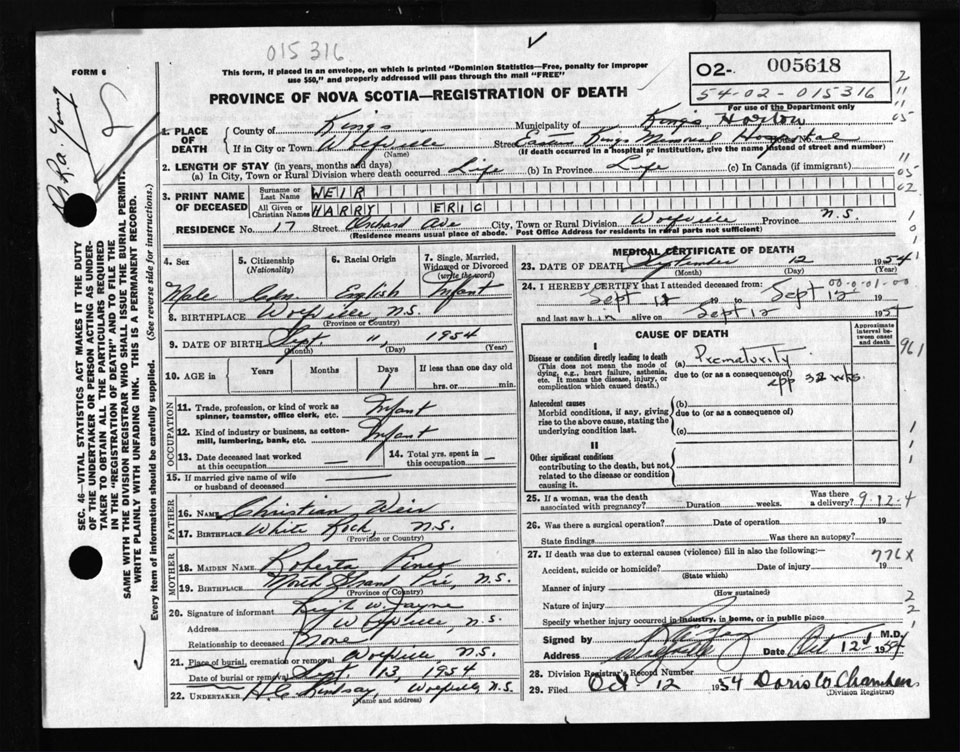 015316
FORM 6
This form, if placed in an envelope, on which is printed "Dominion Statistics—Free, penalty for improper
use $50," and properly addressed will pass through the mail "FREE"
02- 005618
54-02-015316
For use of the Department only
PROVINCE OF NOVA SCOTIA—REGISTRATION OF DEATH
1. PLACE OF DEATH
County of Kings Municipality of Kings Horton
If in City or Town Wolfville Street Eastern Kings Memorial Hospital House No.
(Name) (If death occurred in a hospital or institution, give the name instead of street and number)
2. LENGTH OF STAY (in years, months and days)
(a) In City, Town or Rural Division where death occurred Life (b) In Province Life (c) In Canada (if immigrant)
3. PRINT NAME OF DECEASED
Surname or Last Name WEIR
All Given or Christian Names HARRY ERIC
RESIDENCE No. 17 Street Orchard Ave City, Town or Rural Division Wolfville Province N.S.
(Residence means usual place of abode. Post Office Address for residents in rural parts not sufficient)
4. Sex Male
5. Citizenship (Nationality) Cdn.
6. Racial Origin English
7. Single, Married, Widowed or Divorced (write the word) Infant
8. BIRTHPLACE Wolfville, N.S.
(Province or Country)
9. DATE OF BIRTH Sept 11, 1954
(Month) (Day) (Year)
10. AGE in Years Months Days 1 If less than one day old
hrs. or min.
OCCUPATION
11. Trade, profession, or kind of work as spinner, teamster, office clerk, etc. Infant
12. Kind of industry or business, as cotton-mill, lumbering, bank, etc. Infant
13. Date deceased last worked at this occupation —
14. Total yrs. spent in this occupation —
15. If married give name of wife or husband of deceased
FATHER
16. NAME Christian Weir
17. BIRTHPLACE White Rock, N.S.
(Province or Country)
MOTHER
18. MAIDEN NAME Roberta
19. BIRTHPLACE North Grand Pre, N.S.
(Province or Country)
20. Signature of informant W. Jayne
Address Wolfville, N.S.
Relationship to deceased None
21. Place of burial, cremation or removal Wolfville N.S.
Date of burial or removal Sept 13, 1954
22. UNDERTAKER H.C. Lindsay, Wolfville N.S.
(Name and address)
MEDICAL CERTIFICATE OF DEATH
23. DATE OF DEATH September 12 1954
(Month) (Day) (Year)
24. I HEREBY CERTIFY that I attended deceased from:
00-0-01-00
Sept 12 19 to Sept 12 19
and last saw him alive on Sept 12 195
CAUSE OF DEATH
Approximate interval between onset and death
I
Disease or condition directly leading to death
(This does not mean the mode of dying, e.g., heart failure, asthenia, etc. It means the disease, injury, or complication which caused death.)
(a) Prematurity
due to (or as a consequence of)
app 32 wks.
Antecedent causes
Morbid conditions, if any, giving rise to the above cause, stating the underlying condition last.
(b)
due to (or as a consequence of)
(c)
II
Other significant conditions
contributing to the death, but not related to the disease or condition causing it.
961
25. If a woman, was the death associated with pregnancy? Duration weeks. Was there a delivery?
9-12-4
26. Was there a surgical operation? Date of operation 19
State findings Was there an autopsy?
27. If death was due to external causes (violence) fill in also the following:—
776X
Accident, suicide or homicide? Date of injury 19
(State which)
Manner of injury
(How sustained)
Nature of injury
Specify whether injury occurred in industry, in home, or in public place
Signed by M.D.
Address Wolfville Date Oct 12 1954
28. Division Registrar's Record Number
29. Filed Oct 12 1954 Doris W Chambers
(Division Registrar)
SEC. 46—VITAL STATISTICS ACT MAKES IT THE DUTY
OF THE UNDERTAKER OR PERSON ACTING AS UNDER-
TAKER TO OBTAIN ALL THE PARTICULARS REQUIRED
IN THE "REGISTRATION OF DEATH" AND TO FILE THE
SAME WITH THE DIVISION REGISTRAR WHO SHALL ISSUE THE BURIAL PERMIT.
WRITE PLAINLY WITH UNFADING INK. THIS IS A PERMANENT RECORD.
Every item of information should be carefully supplied. (See reverse side for instructions.)